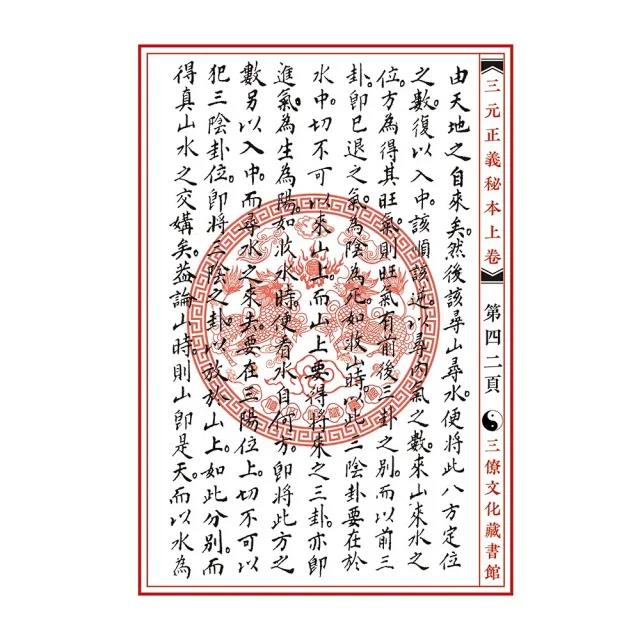 《三元正義秘本上卷》 第四二頁 三僚文化藏書館
由天地之自來矣。然後該尋山尋水。便將此八方定位
之數。復以入中。該順該逆。以尋內氣之數。來山來水之
位。方為得其旺氣。則旺氣有前後三卦之別。而以前三
卦。即已退之氣。為陰為死。如收山時。以此三陰卦要在於
水中。切不可以來山上。而山上要得將來之三卦。亦即
進氣。為生為陽。如收水時。便看水自何方。即將此方之
數另以入中。而尋水之來去。要在三陽位上。切不可以
犯三陰卦位。即將三陰之卦以放於山上。如此分別。而
得真山水之交媾矣。益論山時。則山即是天。而以水為